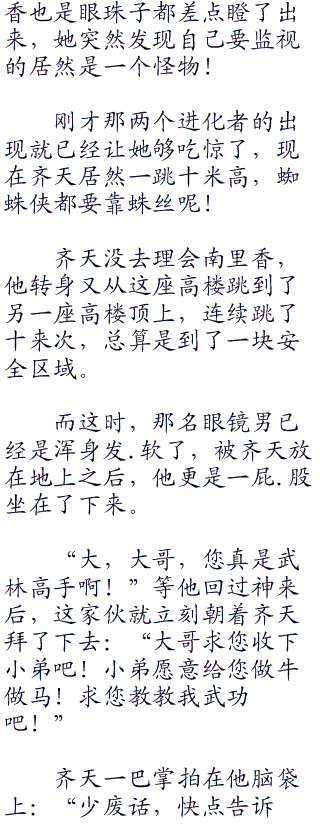 香也是眼珠子都差点瞪了出
来，她突然发现自己要监视
的居然是一个怪物！
刚才那两个进化者的出
现就已经让她够吃惊了，现
在齐天居然一跳十米高，蜘
蛛侠都要靠蛛丝呢！
齐天没去理会南里香，
他转身又从这座高楼跳到了
另一座高楼顶上，连续跳了
十来次，总算是到了一块安
全区域。
而这时，那名眼镜男已
经是浑身发.软了，被齐天放
在地上之后，他更是一屁.股
坐在了下来。
“大，大哥，您真是武
林高手啊！”等他回过神来
后，这家伙就立刻朝着齐天
拜了下去：“大哥求您收下
小弟吧！小弟愿意给您做牛
做马！求您教教我武功
吧！”
齐天一巴掌拍在他脑袋
上：“少废话，快点告诉